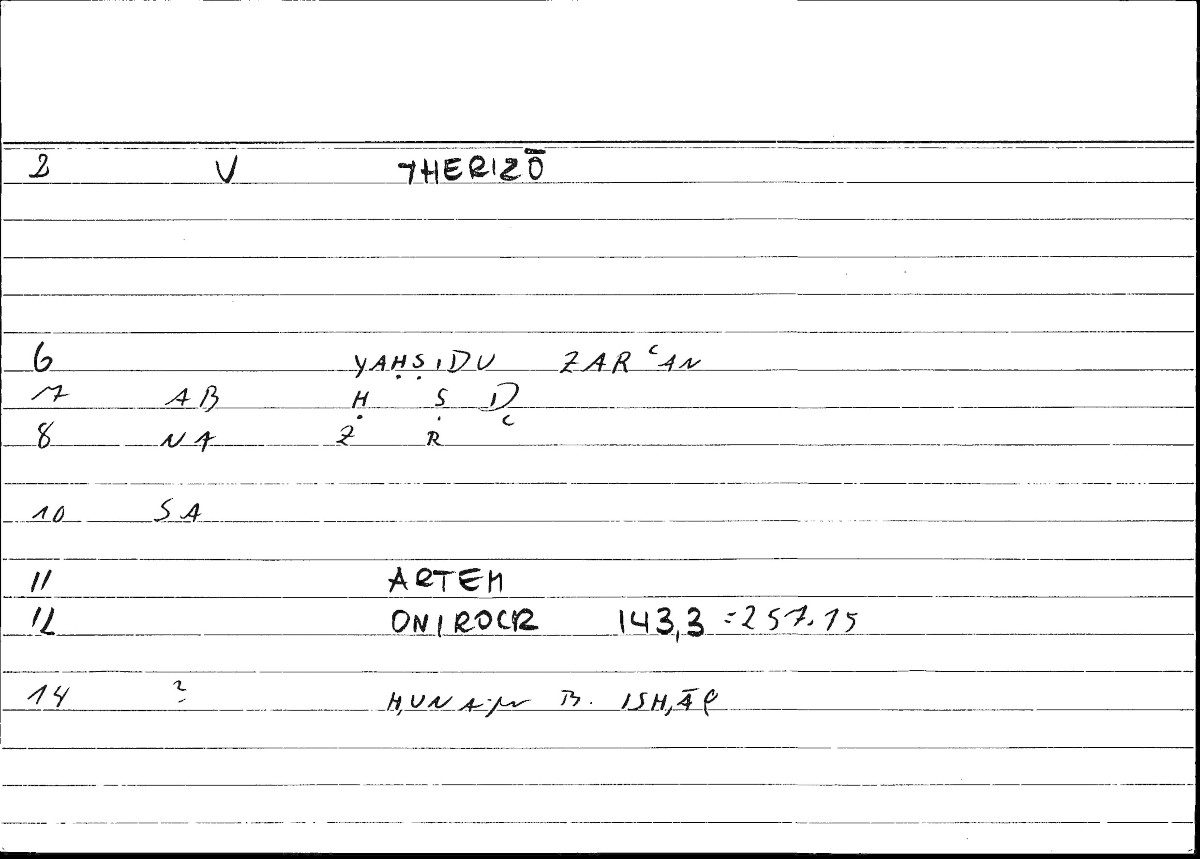 2 V THERIZŌ
6 YAḤṢIDU ZARʿAN
7 AB Ḥ Ṣ D
8 NA Z R ʿ
10 SA
11 ARTEM
12 ONIROCR 143,3 = 257.15
14 ? ḤUNAIN B. ISḤĀQ